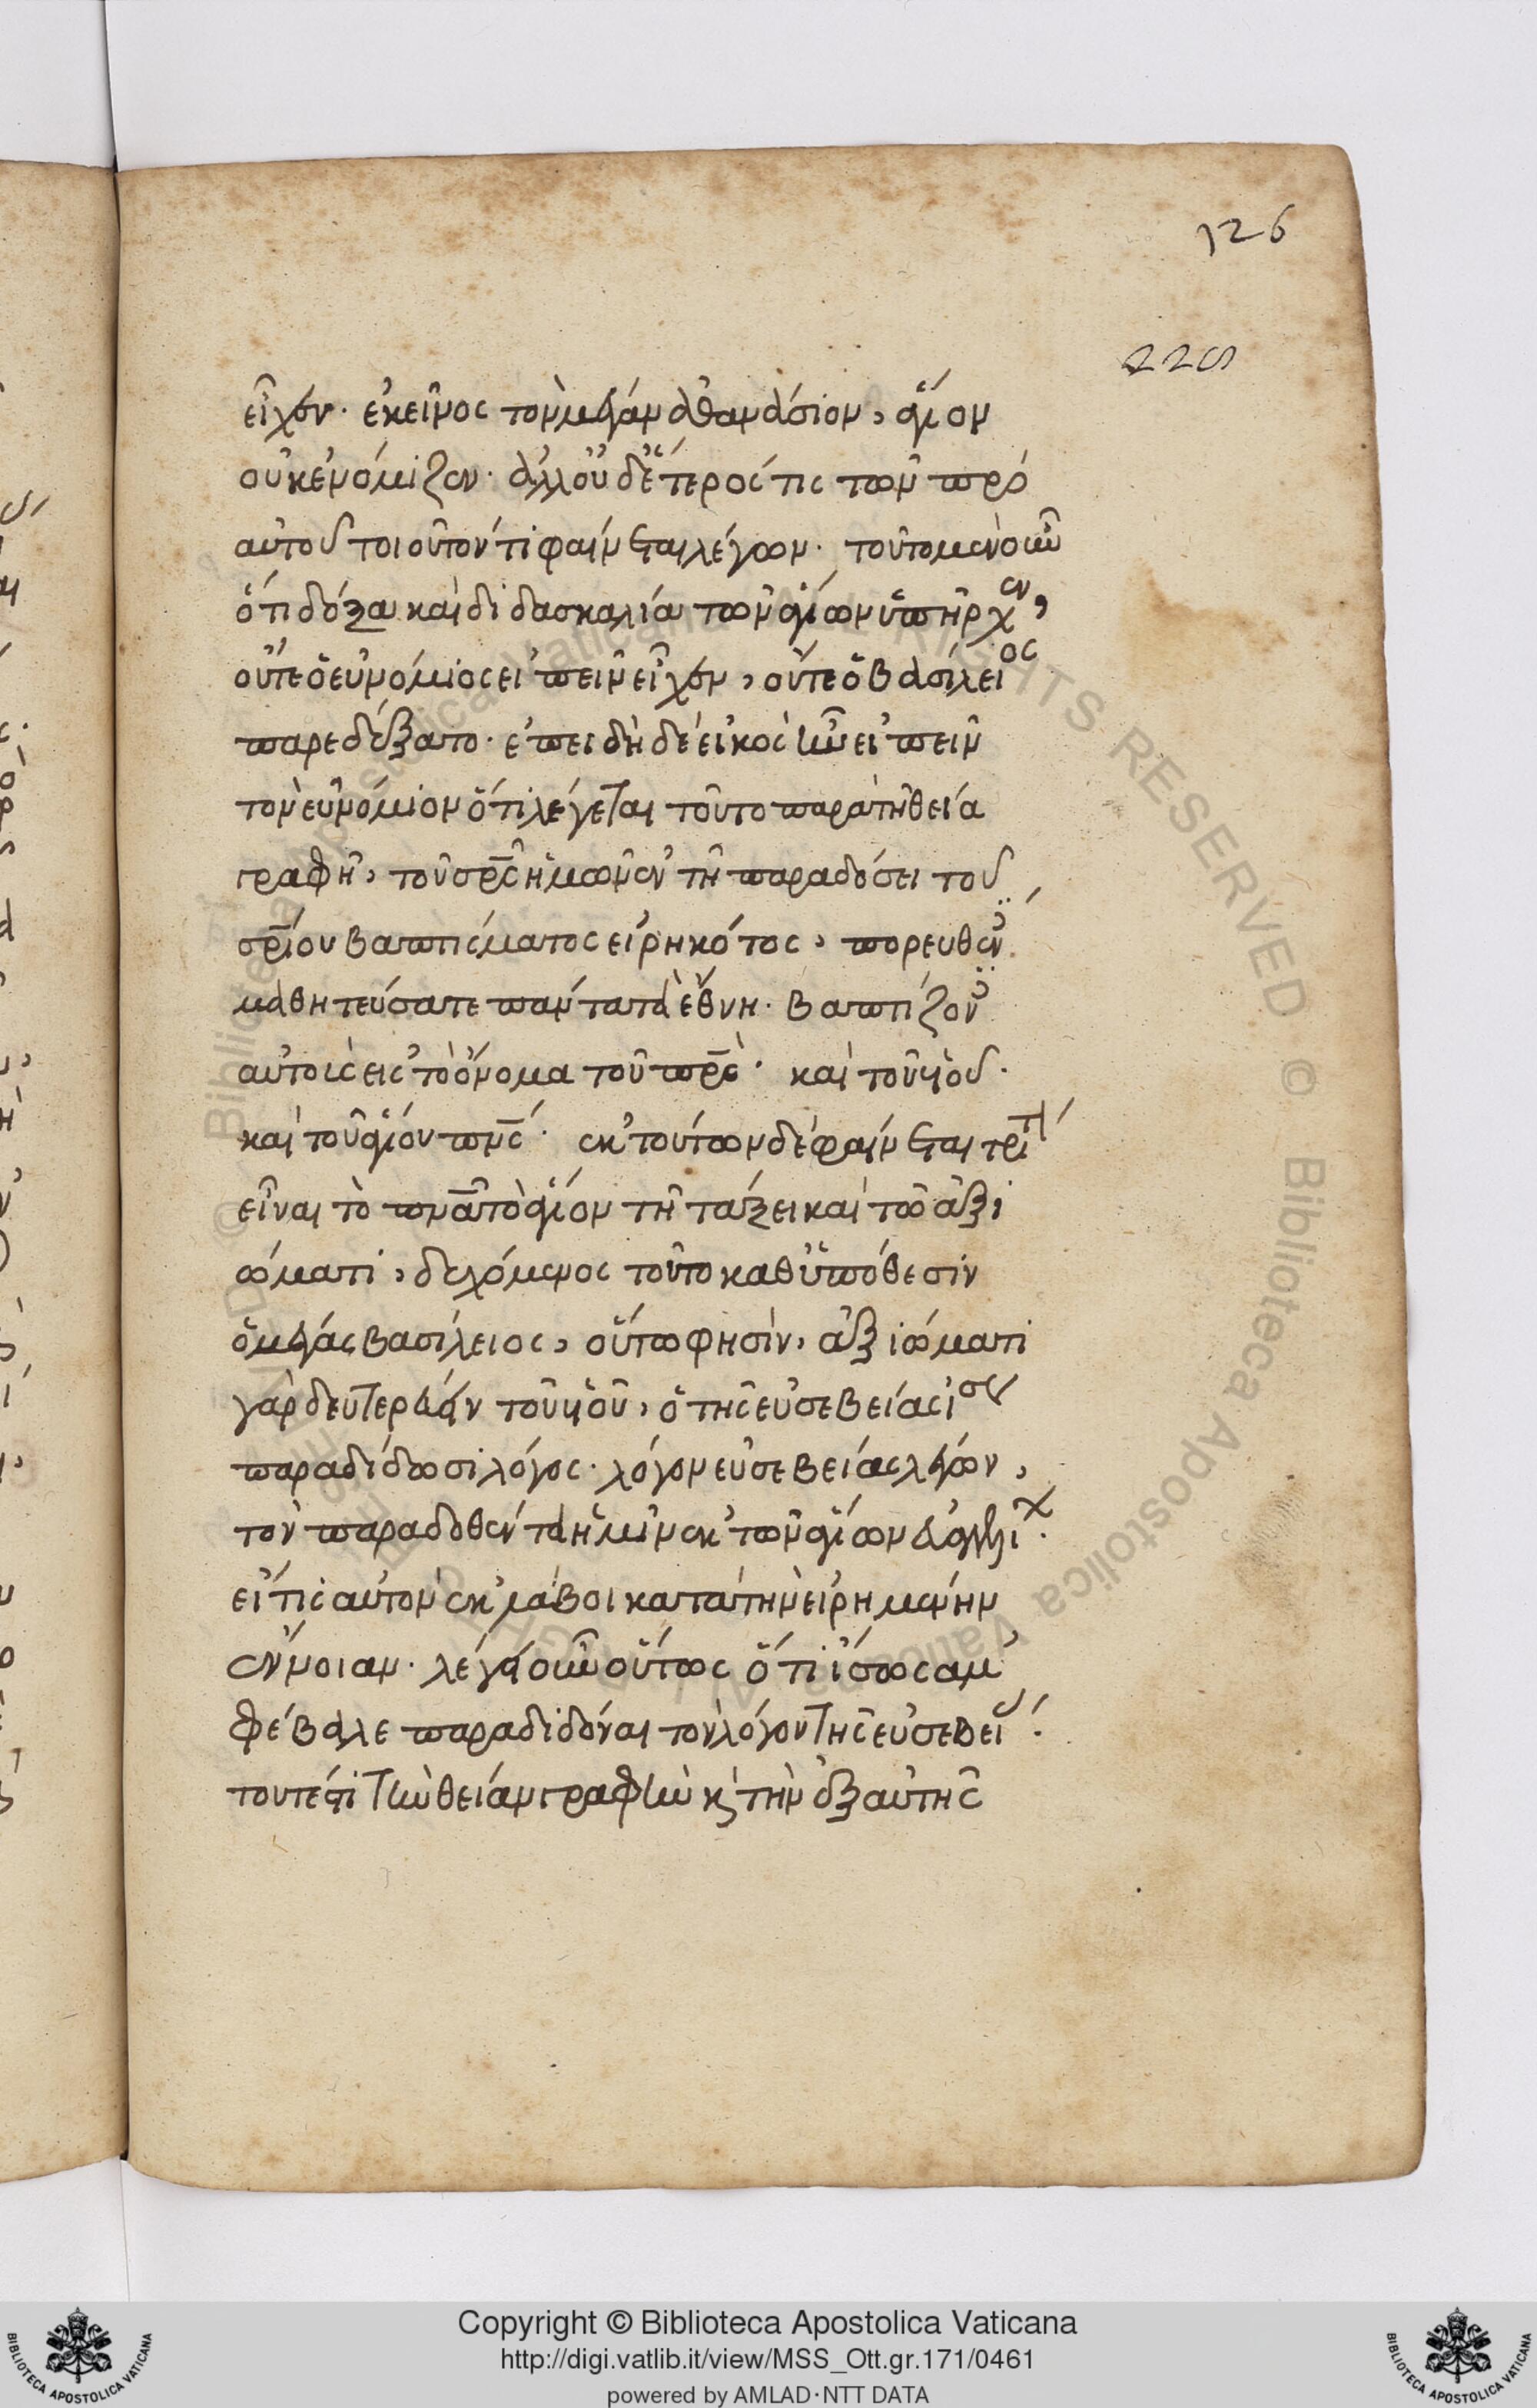 126
225
εἶχον. ἐκεῖνος τὸν μέγαν ἀθανάσιον, ἅγιον
οὐκ ἐνόμιζεν. ἀλλ οὐδ ἕτερός τις τῶν πρὸ
αὐτοῦ τοιοῦτόν τι φαίνεται λέγων. τοῦτο μὲν οὖν
ὅτι δόξα καὶ διδασκαλία τῶν ἁγίων ὑπῆρχεν,
οὔτε ὁ εὐνόμιος εἰπεῖν εἶχεν, οὔτε ὁ βασίλειος
παρεδέξατο. ἐπειδὴ δὲ εἰκὸς ἦν εἰπεῖν
τὸν εὐνόμιον ὅτι λέγεται τοῦτο παρὰ τῇ θεία
γραφῇ, τοῦ σρ̅ς ἡμῶν ἐν τῇ παραδόσει τοῦ
σρ̅ίου βαπτίσματος εἰρηκότος, πορευθέν
μαθητεύσατε πάντα τὰ ἔθνη. βαπτίζον
αὐτοὺς εἰς τὸ ὄνομα τοῦ πρ̅ς. καὶ τοῦ υἱοῦ.
καὶ τοῦ ἁγίου πν̅ς. ἐκ τούτων δὲ φαίνεται τρίτ
εἶναι τὸ πν̅α τὸ ἅγιον τῇ τάξει καὶ τῶ ἀξι
ώματι, δεχόμενος τοῦτο καθ ὑπόθεσιν
ὁ μέγας βασίλειος, οὕτω φησίν, ἀξιώματι
γὰρ δευτερεύειν τοῦ υἱοῦ, ὁ τῆς εὐσεβείας ἴσως
παραδίδωσι λόγος. λόγον εὐσεβείας λέγων,
τὸν παραδοθέντα ἡμῖν ἐκ τῶν ἁγίων εὐαγγελι
εἴ τις αὐτὸν ἐκλάβοι κατὰ τὴν εἰρημένην
ἔννοιαν. λέγει οὖν οὕτως ὅτι ἴσως ἀμ
φέβαλε παραδιδόναι τὸν λόγον τῆς εὐσεβεί.
τουτέστι τὴν θείαν γραφὴν κ τὴν ἐξ αὐτῆς
Copyright © Biblioteca Apostolica Vaticana
http://digi.vatlib.it/view/MSS_Ott.gr.171/0461
powered by AMLAD·NTT DATA